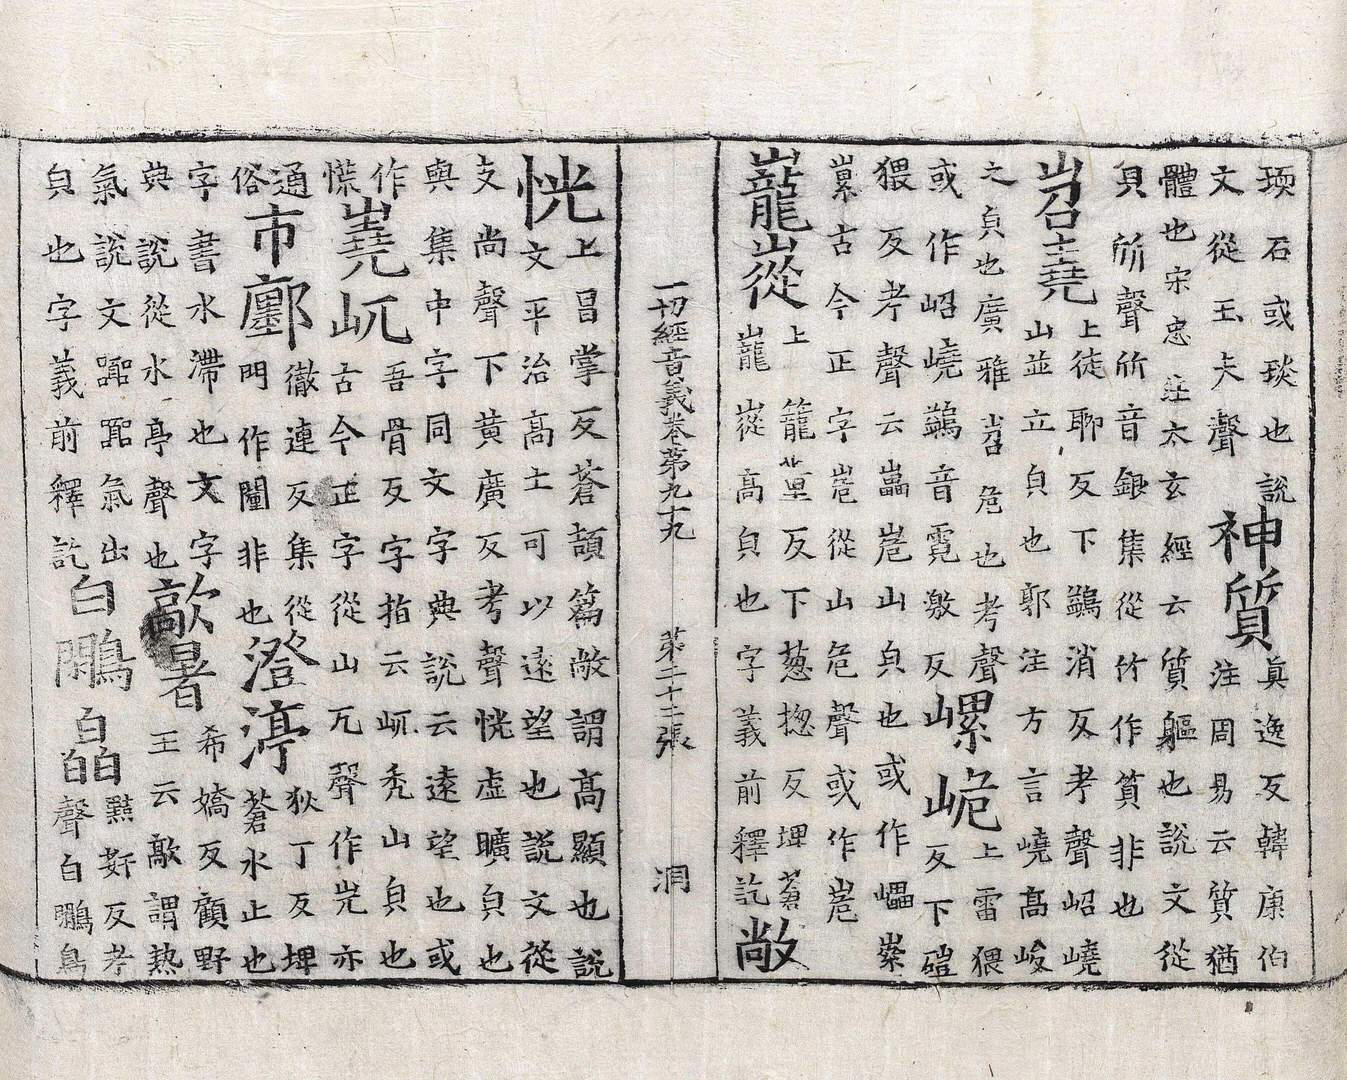 瑌石或琰也說
文從玉夫聲
神質
真逸反韓康伯
注周易云質猶
體也宋忠注太玄經云質軀也說文從
貝所聲所音銀集從竹作質非也
岧嶤
上徒聊反下鷊消反考聲岧嶢
山並立皃也郭注方言嶢高峻
之皃也廣雅岧危也考聲
或作岹嶢鷊音霓激反
㠥峗
上雷猥
反下磑
猥反考聲云畾峞山皃也或作
㠥古今正字峞從山危聲或作峞
巃嵷
上籠董反下葱揔反埤蒼
巃嵷高皃也字義前釋訖
敞
一切經音義卷第九十九 第二十二張 洞
恍
上昌掌反蒼頡篇敞謂高顯也說
文平治高土可以遠望也說文從
支尚聲下黄廣反考聲恍虛曠皃也
與集中字同文字典說云遠望也或
作
慌
嶤屼
吾骨反字指云屼禿山皃也
古今正字從山兀聲作亦
通
俗
市鄽
徹連反集從
門作闤非也
澄渟
狄丁反埤
蒼水止也
字書水滯也文字
典說從水亭聲也
歊暑
希嬌反顧野
王云歊謂熱
氣說文氣出
皃也字義前釋訖
白鷳
皛
反考
聲白鷳鳥